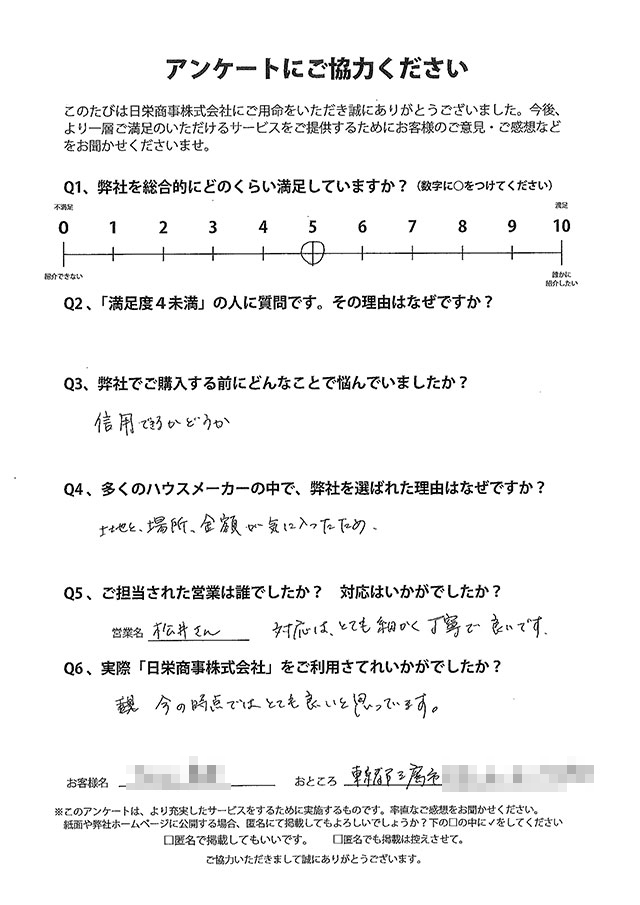 アンケートにご協力ください
このたびは日栄商事株式会社にご用命をいただき誠にありがとうございました。今後、
より一層ご満足のいただけるサービスをご提供するためにお客様のご意見・ご感想など
をお聞かせくださいませ。
Q1、弊社を総合的にどのくらい満足していますか？（数字に○をつけてください）
不満足 満足
0 1 2 3 4 5 6 7 8 9 10
紹介できない 誰かに
紹介したい
Q2、「満足度４未満」の人に質問です。その理由はなぜですか？
Q3、弊社でご購入する前にどんなことで悩んでいましたか？
信用できるかどうか
Q4、多くのハウスメーカーの中で、弊社を選ばれた理由はなぜですか？
土地と、場所、金額が気に入ったため、
Q5、ご担当された営業は誰でしたか？　対応はいかがでしたか？
営業名 松井さん 対応は、とても細かく丁寧で良いです。
Q6、実際「日栄商事株式会社」をご利用さてれいかがでしたか？
今の時点ではとても良いと思っています。
お客様名 おところ 東京都三鷹市
※このアンケートは、より充実したサービスをするために実施するものです。率直なご感想をお聞かせください。
紙面や弊社ホームページに公開する場合、匿名にて掲載してもよろしいでしょうか？下の□の中に✓をしてください
□匿名で掲載してもいいです。　□匿名でも掲載は控えさせて。
ご協力いただきまして誠にありがとうございます。